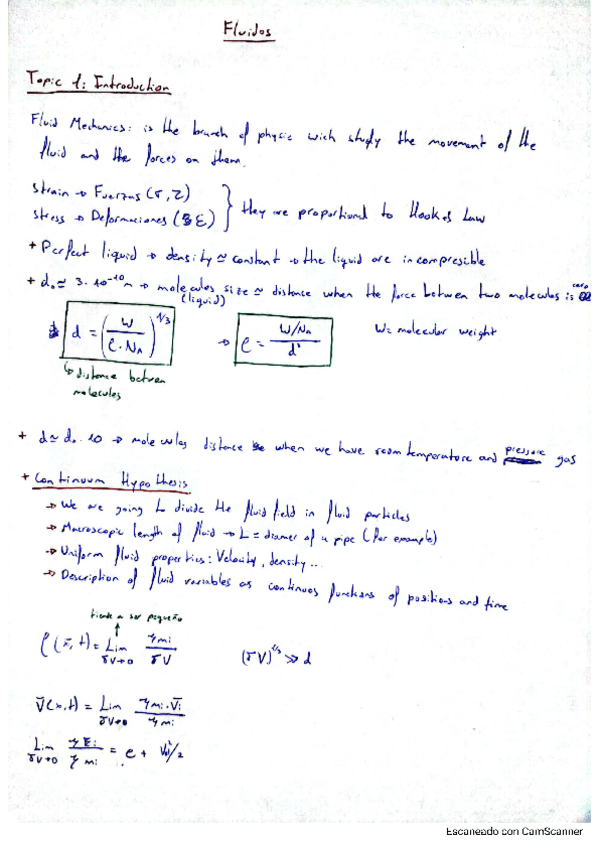 Fluidos
Topic 1: Introduction
Fluid Mechanics: is the branch of physic wich study the movement of the
fluid and the forces on them.
Strain → Fuerzas (σ, τ)
stress → Deformaciones (ε) } they are proportional to Hooke's Law
+ Perfect liquid → density ≃ constant → the liquid are incompresible
+ d₀ ≃ 3·10⁻¹⁰ m → molecules size ≃ distance when the force between two molecules is cero
(liquid)
d = (W / ρ·N_A)^1/3 → ρ = W/N_A / d³ W = molecular weight
↳ distance between
molecules
+ d ≃ d₀·10 → molecules distance when we have room temperature and pressure gas
+ Continuum Hypothesis
→ We are going to divide the fluid field in fluid particles
→ Macroscopic length of fluid → L = diamer of a pipe (for example)
→ Uniform fluid properties: Velocity, density...
→ Description of fluid variables as continuos functions of positions and time
tiende a ser pequeño
ρ(x̄, t) = Lim δV→0 Σmi / δV (δV)^1/3 ≫ d
V̄(x,t) = Lim δV→0 Σmi·V̄i / Σmi
Lim δV→0 ΣEi / Σmi = e +
Escaneado con CamScanner